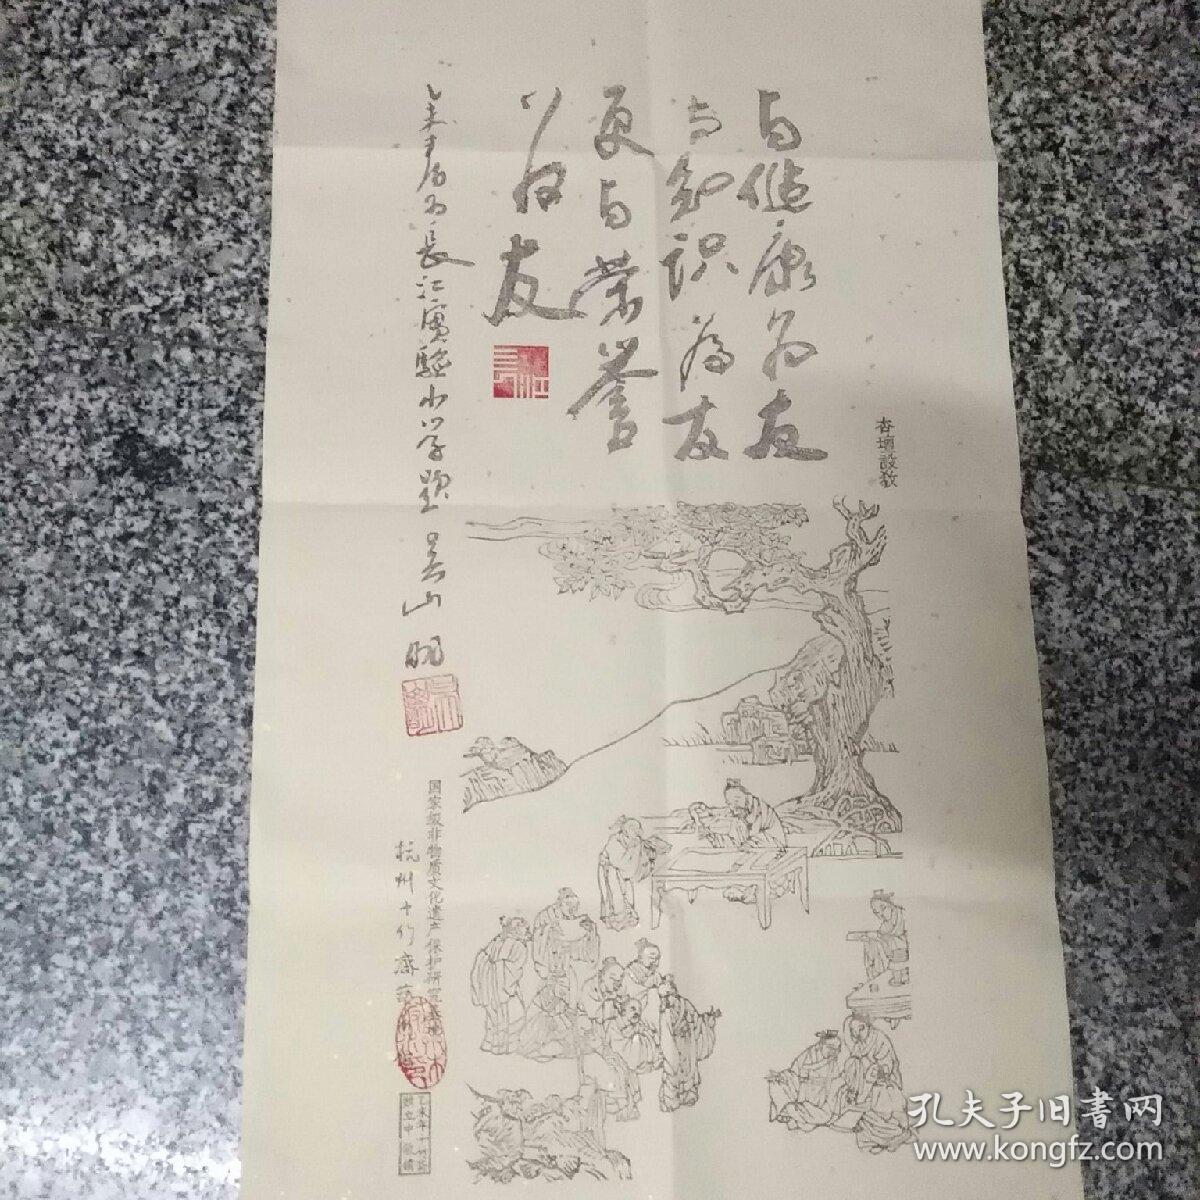 与健康为友
与知识为友
更与荣誉
为友
乙未年春为长江实验小学题 吴山明
杏壇設教
国家级非物质文化遗产保护研究基地
杭州十竹斋
孔夫子旧书网
www.kongfz.com